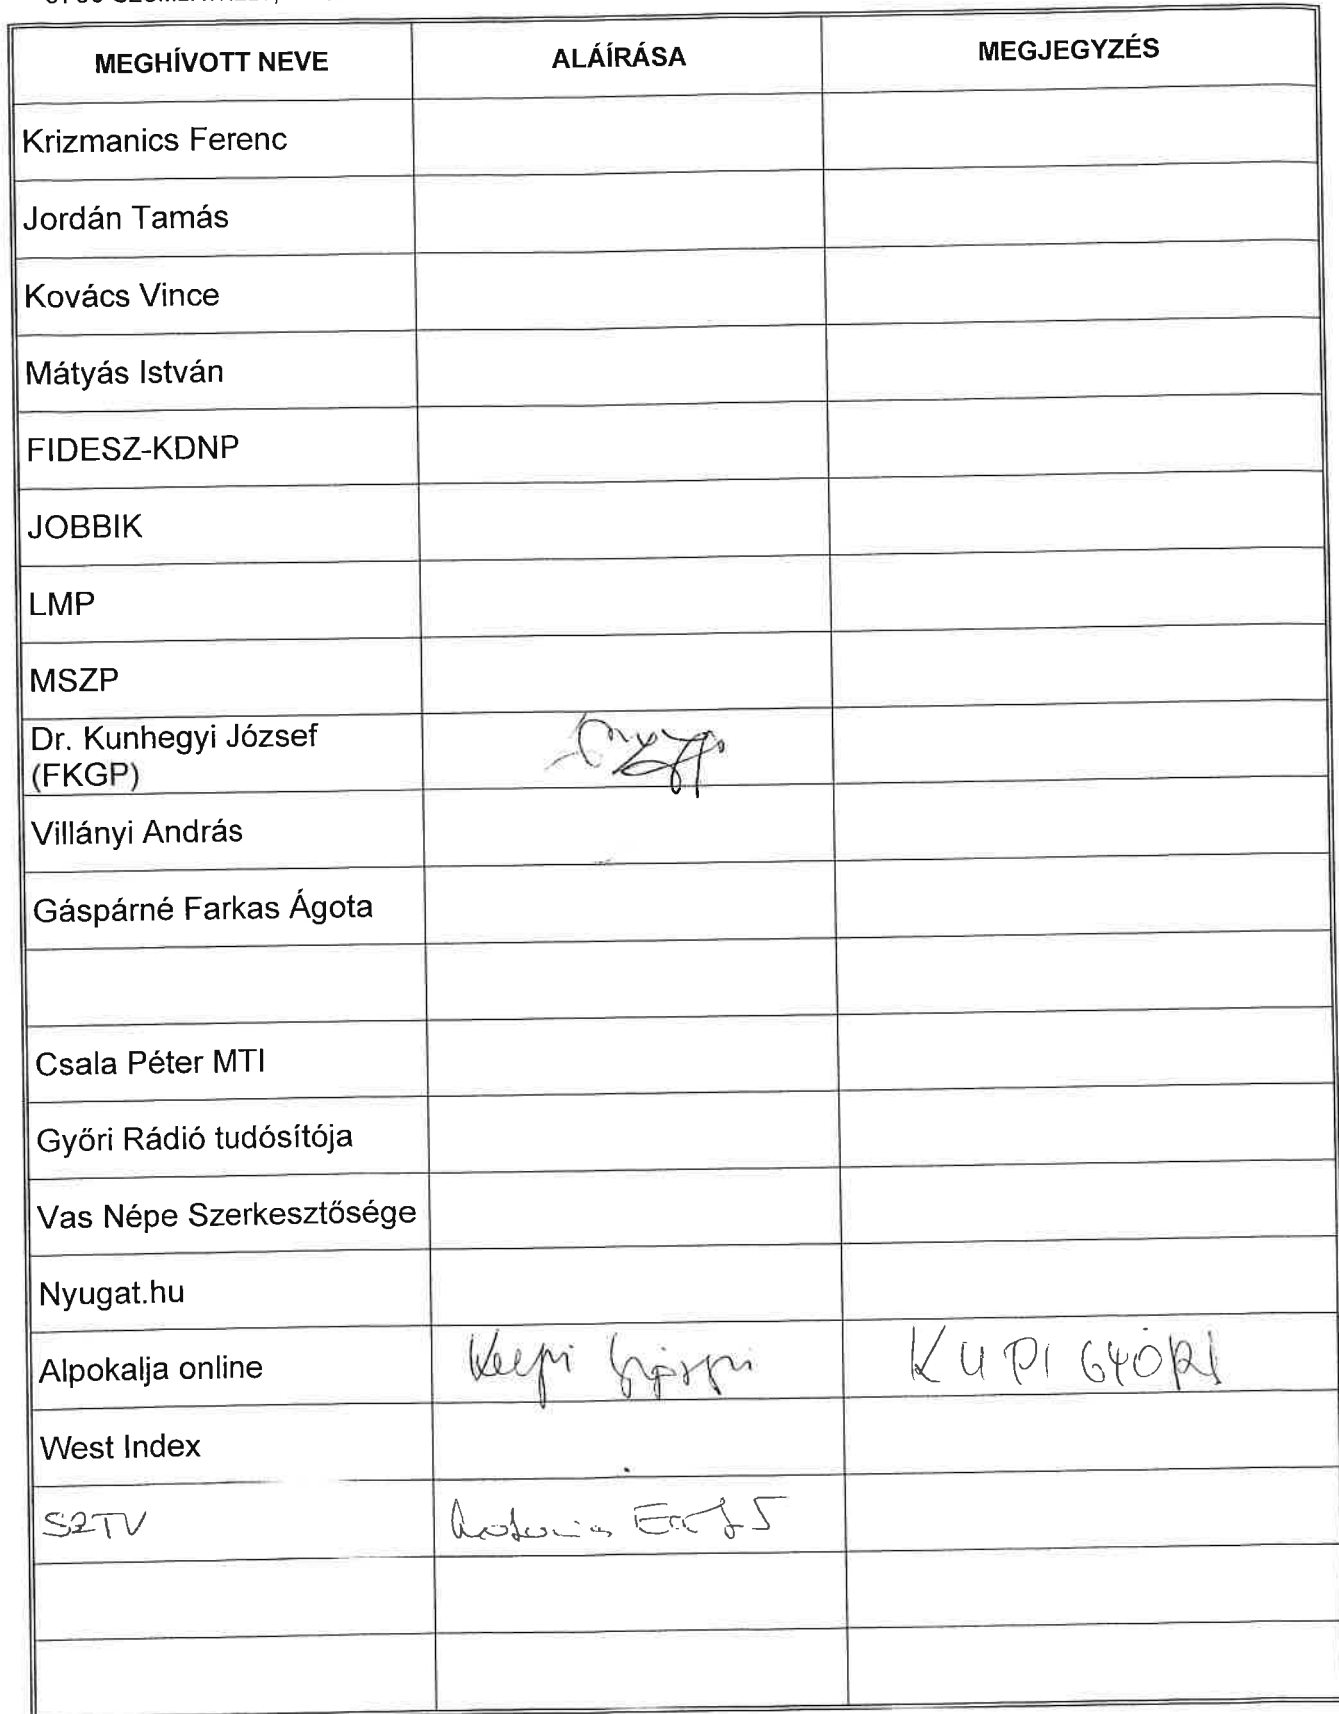 MEGHÍVOTT NEVE ALÁÍRÁSA MEGJEGYZÉS
Krizmanics Ferenc
Jordán Tamás
Kovács Vince
Mátyás István
FIDESZ-KDNP
JOBBIK
LMP
MSZP
Dr. Kunhegyi József
(FKGP)
Villányi András
Gáspárné Farkas Ágota
Csala Péter MTI
Győri Rádió tudósítója
Vas Népe Szerkesztősége
Nyugat.hu
Alpokalja online KUPI GYÖRI
West Index
SZTV